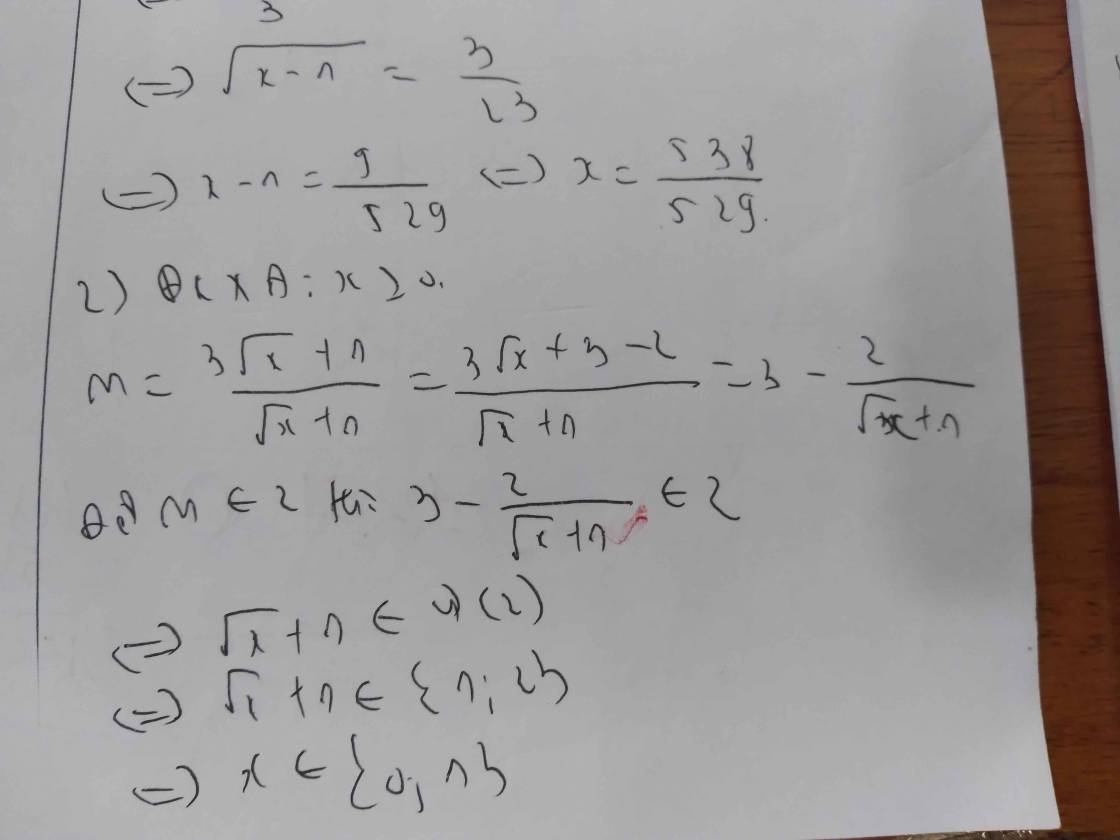 3
⇔ √(x-1) = 3/23
⇔ x-1 = 9/529 ⇔ x = 538/529.
2) ĐKXĐ: x ≥ 0.
M = (3√x + 1)/(√x + 1) = (3√x + 3 - 2)/(√x + 1) = 3 - 2/(√x + 1)
Để M ∈ Z thì 3 - 2/(√x + 1) ∈ Z
⇔ √x + 1 ∈ Ư(2)
⇔ √x + 1 ∈ {1; 2}
⇔ x ∈ {0; 1}